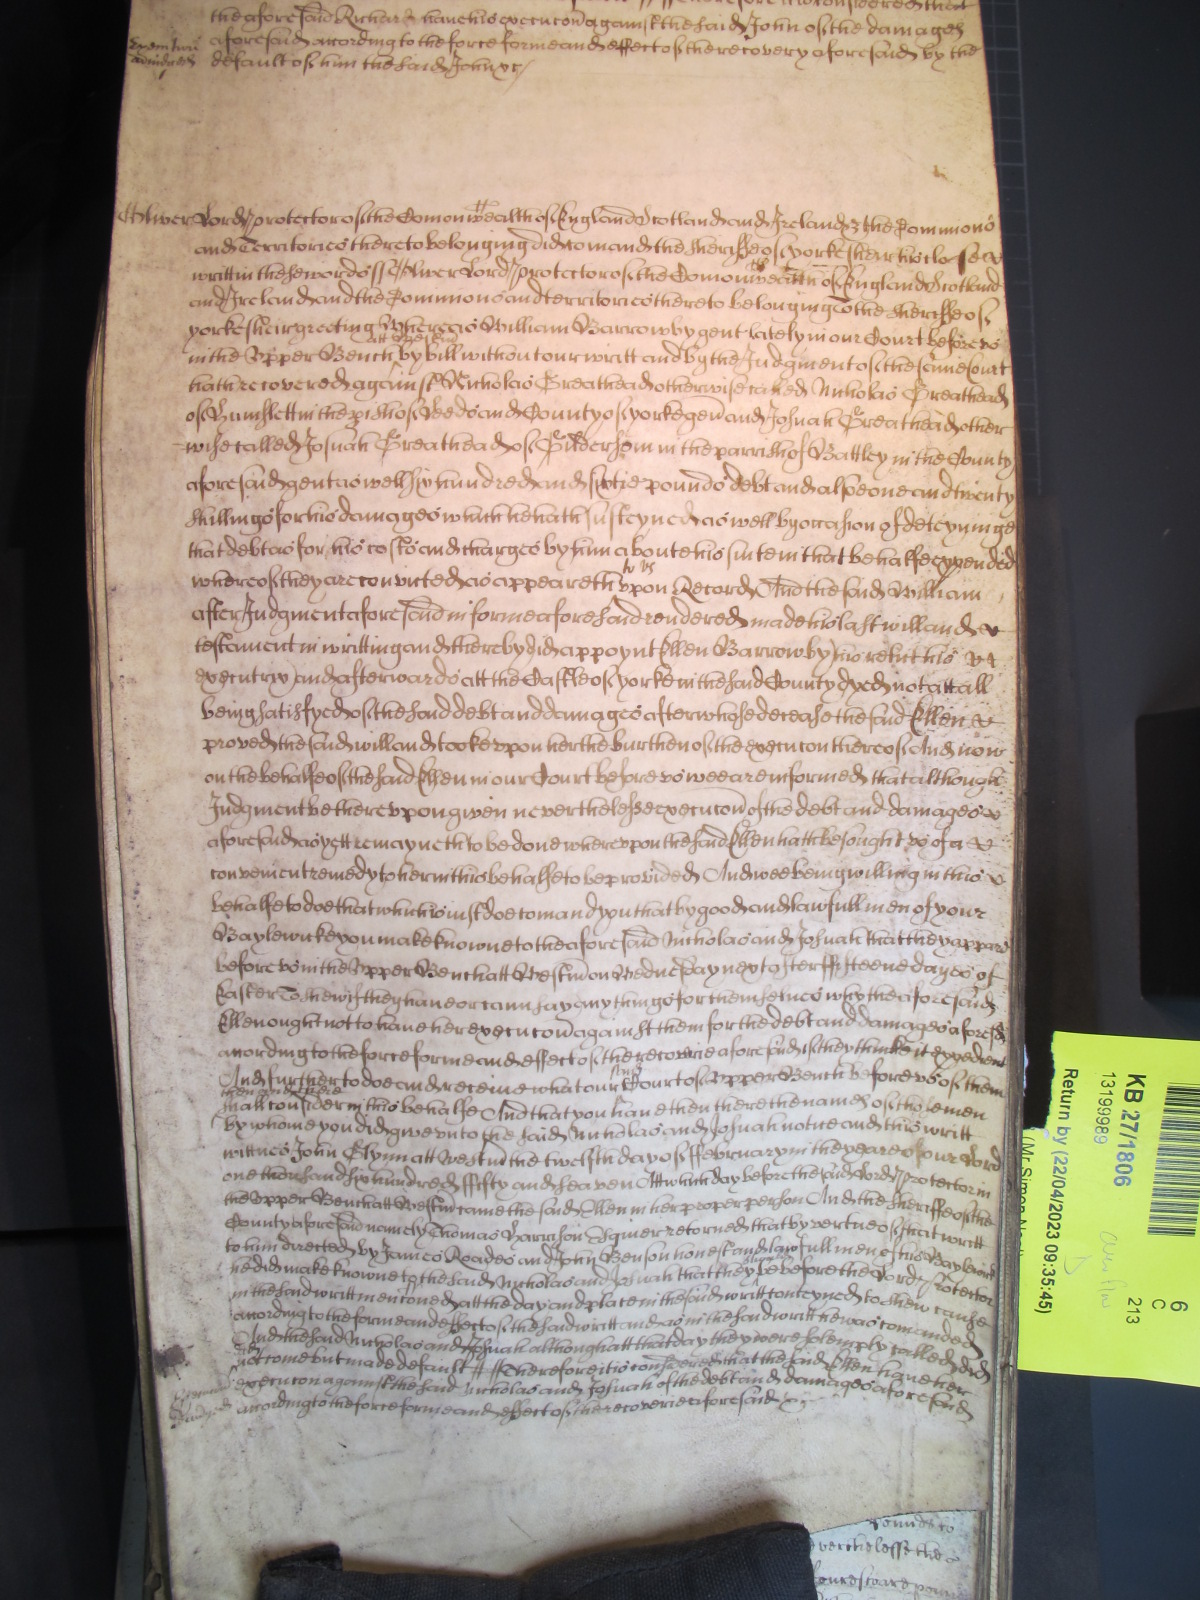 the aforesaid Richard have his execucon against the said John of the damages
aforesaid according to the force forme and effect of the recovery aforesaid by the
default of him the said John &c
Oliver Lord protector of the Comonwealth of England Scotland and Ireland & the Dominions
and Territories thereto belonging did comand the Sheriffe of yorkeshear his close
writt in these words ss Oliver Lord protector of the Comonwealth of England Scotland
and Ireland and the Dominions and territories thereto belonging To the Sheriffe of
yorkesheir greeting Whereas William Barrowby gent lately in our Court before us
in the Upper Bench att Westm by bill without our writt and by the Judgment of the same Court
hath recovered against Nicholas Greathead otherwise called Nicholas Greathead
of Hunslett in the pish of Leeds and County of yorke gen and Josuah Greathead other
wise called Josuah Greathead of Gildersom in the parrish of Battley in the County
aforesaid gent as well six hundred and sixtie pounds debt and alsoe one and twenty
shillings for his damages which he hath susteyned as well by occasion of deteyninge
that debt as for his costs and charges by him about his suite in that behalfe expended
whereof they are convicted as appeareth to us upon Record And the said William
after Judgment aforesaid in forme aforesaid rendered made his last will and
testament in writting and thereby did appoynt Ellen Barrowby his relict his
executrix and afterwards att the Castle of yorke in the said County dyed not att all
being satisfyed of the said debt and damages after whose decease the said Ellen
proved the said will and tooke upon her the burthen of the execucon thereof And now
on the behalfe of the said Ellen in our Court before us wee are informed that although
Judgment be thereupon given neverthelesse execucon of the debt and damages
aforesaid as yett remayneth to be done whereupon the said Ellen hath besought us of a
convenient remedy to her in this behalfe to be provided And wee being willing in this
behalfe to doe that which is just doe comand you that by good and lawfull men of your
Baylewicke you make knowne to the aforesaid Nicholas and Josuah that they appear
before us in the Upper Bench att Westm on Wednesday next after fifteene dayes of
Easter To shew if they have or cann say any things for themselves why the aforesaid
Ellen ought not to have her execucon against them for the debt and damages aforesd
according to the force forme and effect of the recoverie aforesaid if they thinke it expedient
And further to doe and receive what our said Court of Upper Bench before us of them
then and there
shall consider in this behalfe And that you have then there the names of those men
by whome you did give unto the said Nicholas and Josuah notice and this writt
wittnes John Glynn att Westm the twelfth day of ffebruary in the yeare of our Lord
one thousand six hundred fifty and seaven Att which day before the said Lord Protector in
the Upper Bench att Westm came the said Ellen in her proper person And the sheriffe of the
County aforesaid namely Thomas Harrison Esquier retorned that by vertue of that writt
to him directed by James Roades and John Benson honest and lawfull men of his Baylewick
he did make knowne to the said Nicholas and Josuah that they be before the Lord Protector
in the said writt mencioned att the day and place in the said writt conteyned to shew cause
according to the forme and effect of the said writt and as in the said writt he was comanded
And the said Nicholas and Josuah although att that day they were solemply called did
not come but made default Therefore it is considered that the said Ellen have her
execucon against the said Nicholas and Josuah of the debt and damages aforesaid
according to the force forme and effect of the recoverie aforesaid &c
KB 27/1806
13199989
Return by (22/04/2023 09:35:45)
6
C
213